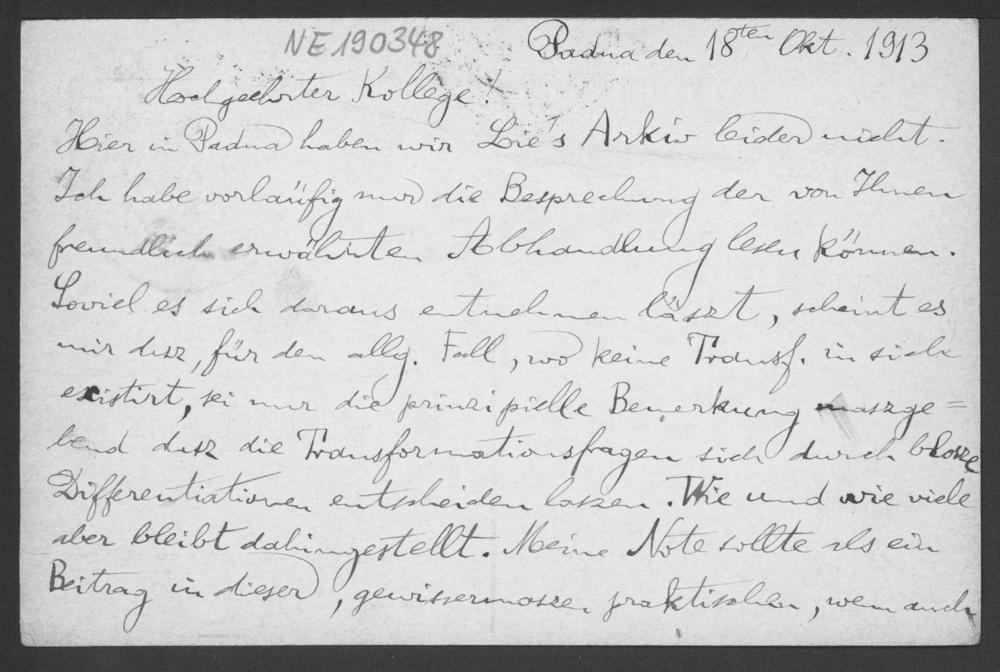 NE.190348
Padua den 18ten Okt. 1913
Hochgeehrter Kollege!
Hier in Padua haben wir Lie's Arkiv leider nicht.
Ich habe vorläufig nur die Besprechung der von Ihnen
freundlich erwähnten Abhandlung lesen können.
Soviel es sich daraus entnehmen läszt, scheint es
mir dasz, für den allg. Fall, wo keine Transf. in sich
existirt, sei nur die prinzipielle Bemerkung maszge=
bend dasz die Transformationsfragen sich durch blosze
Differentiationen entscheiden lassen. Wie und wie viele
aber bleibt dahingestellt. Meine Note sollte als ein
Beitrag in dieser, gewissermassen praktischen, wenn auch